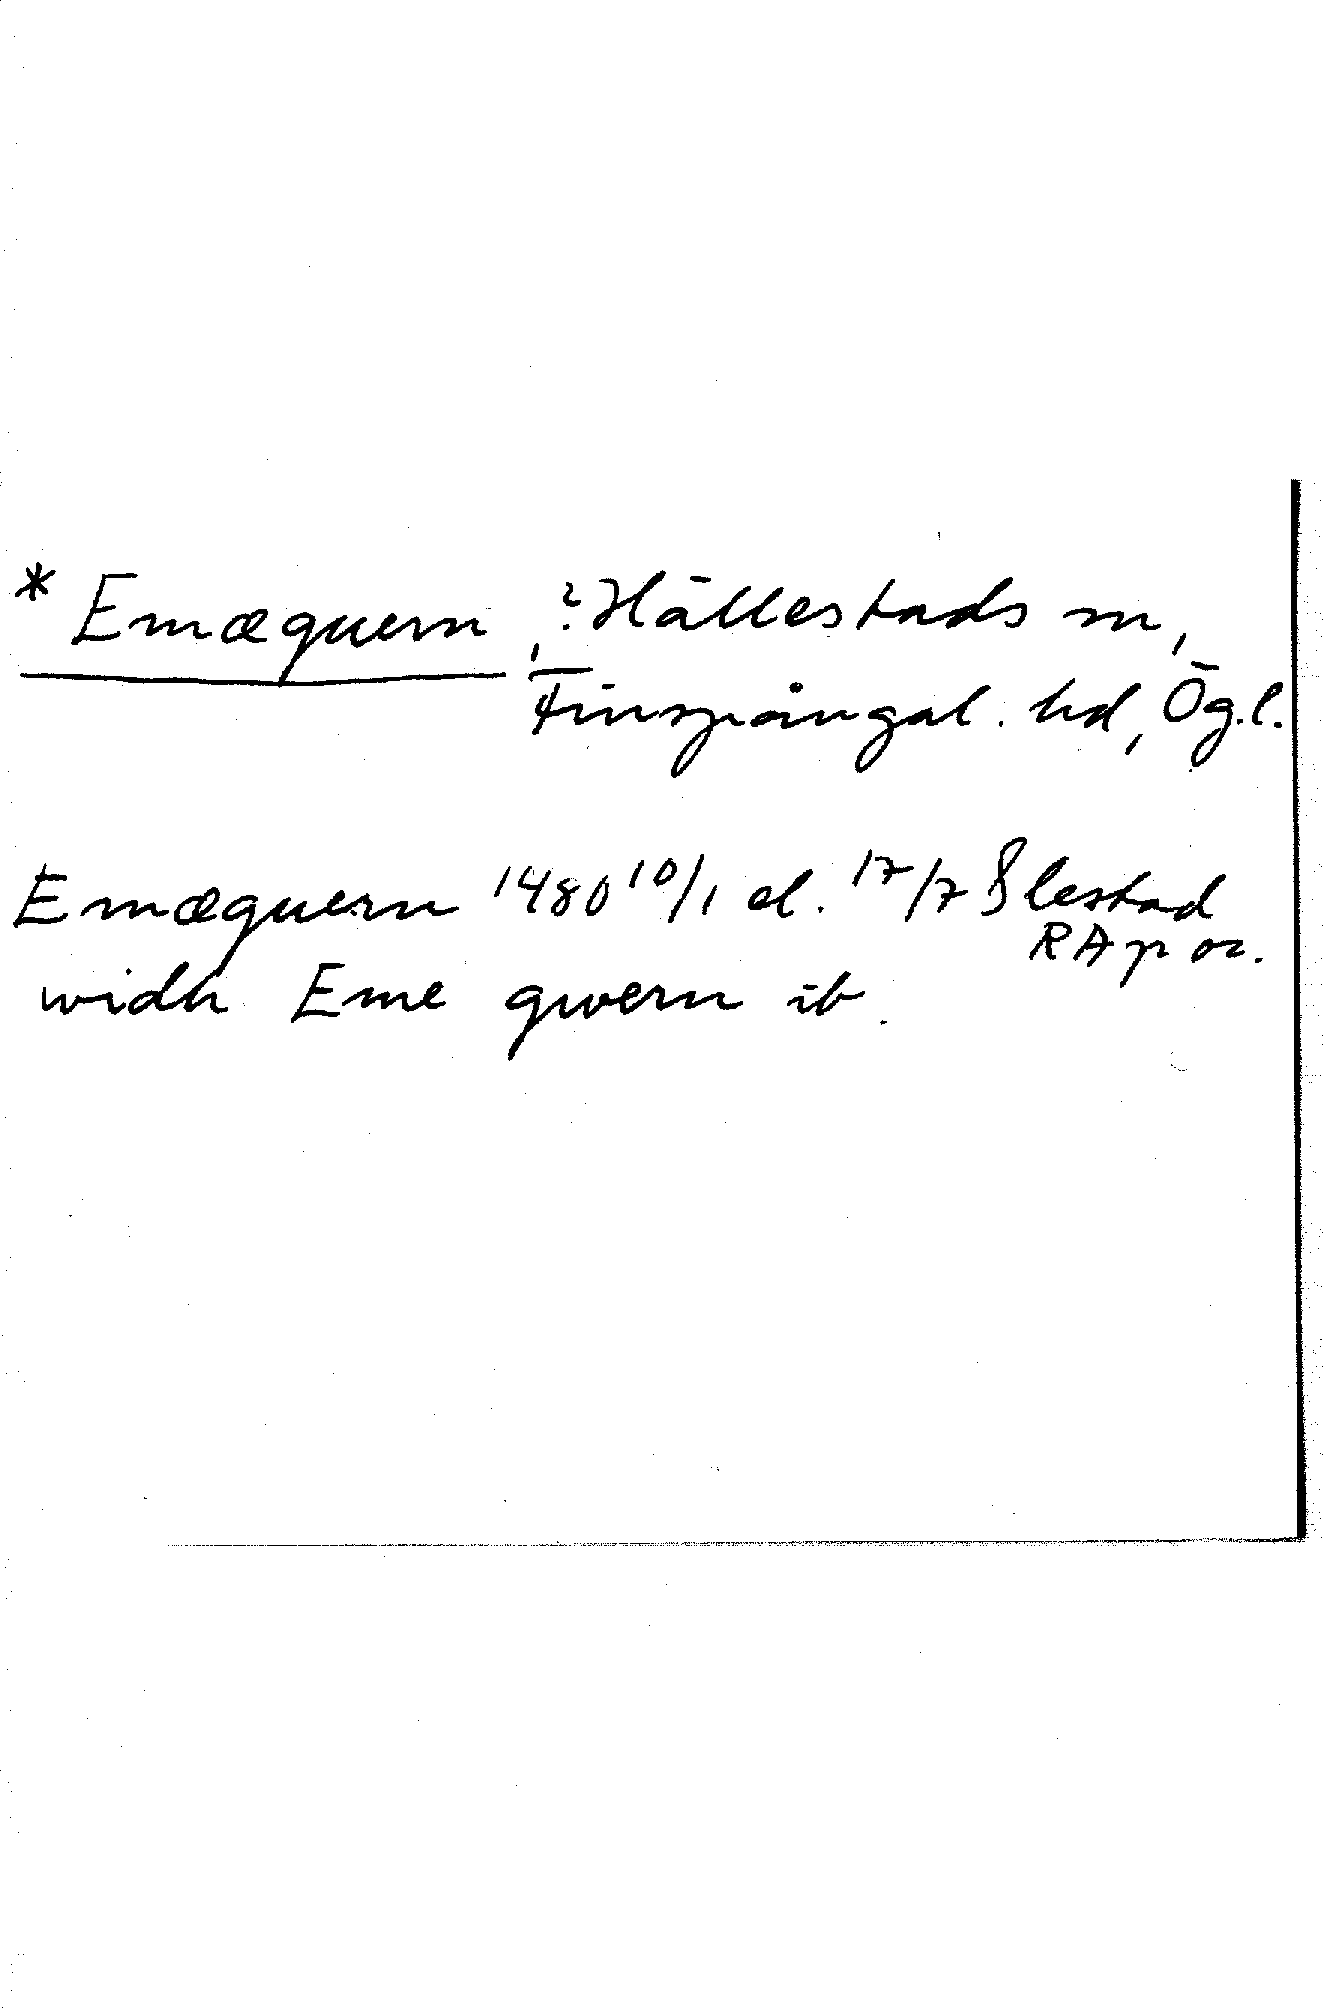 * Emæquern, ? Hällestads sn,
Finspångal. hd, Ögl.
Emæquern 1480 10/1 el. 17/7 Ålestad
RAp or.
widh Eme qwern ib.